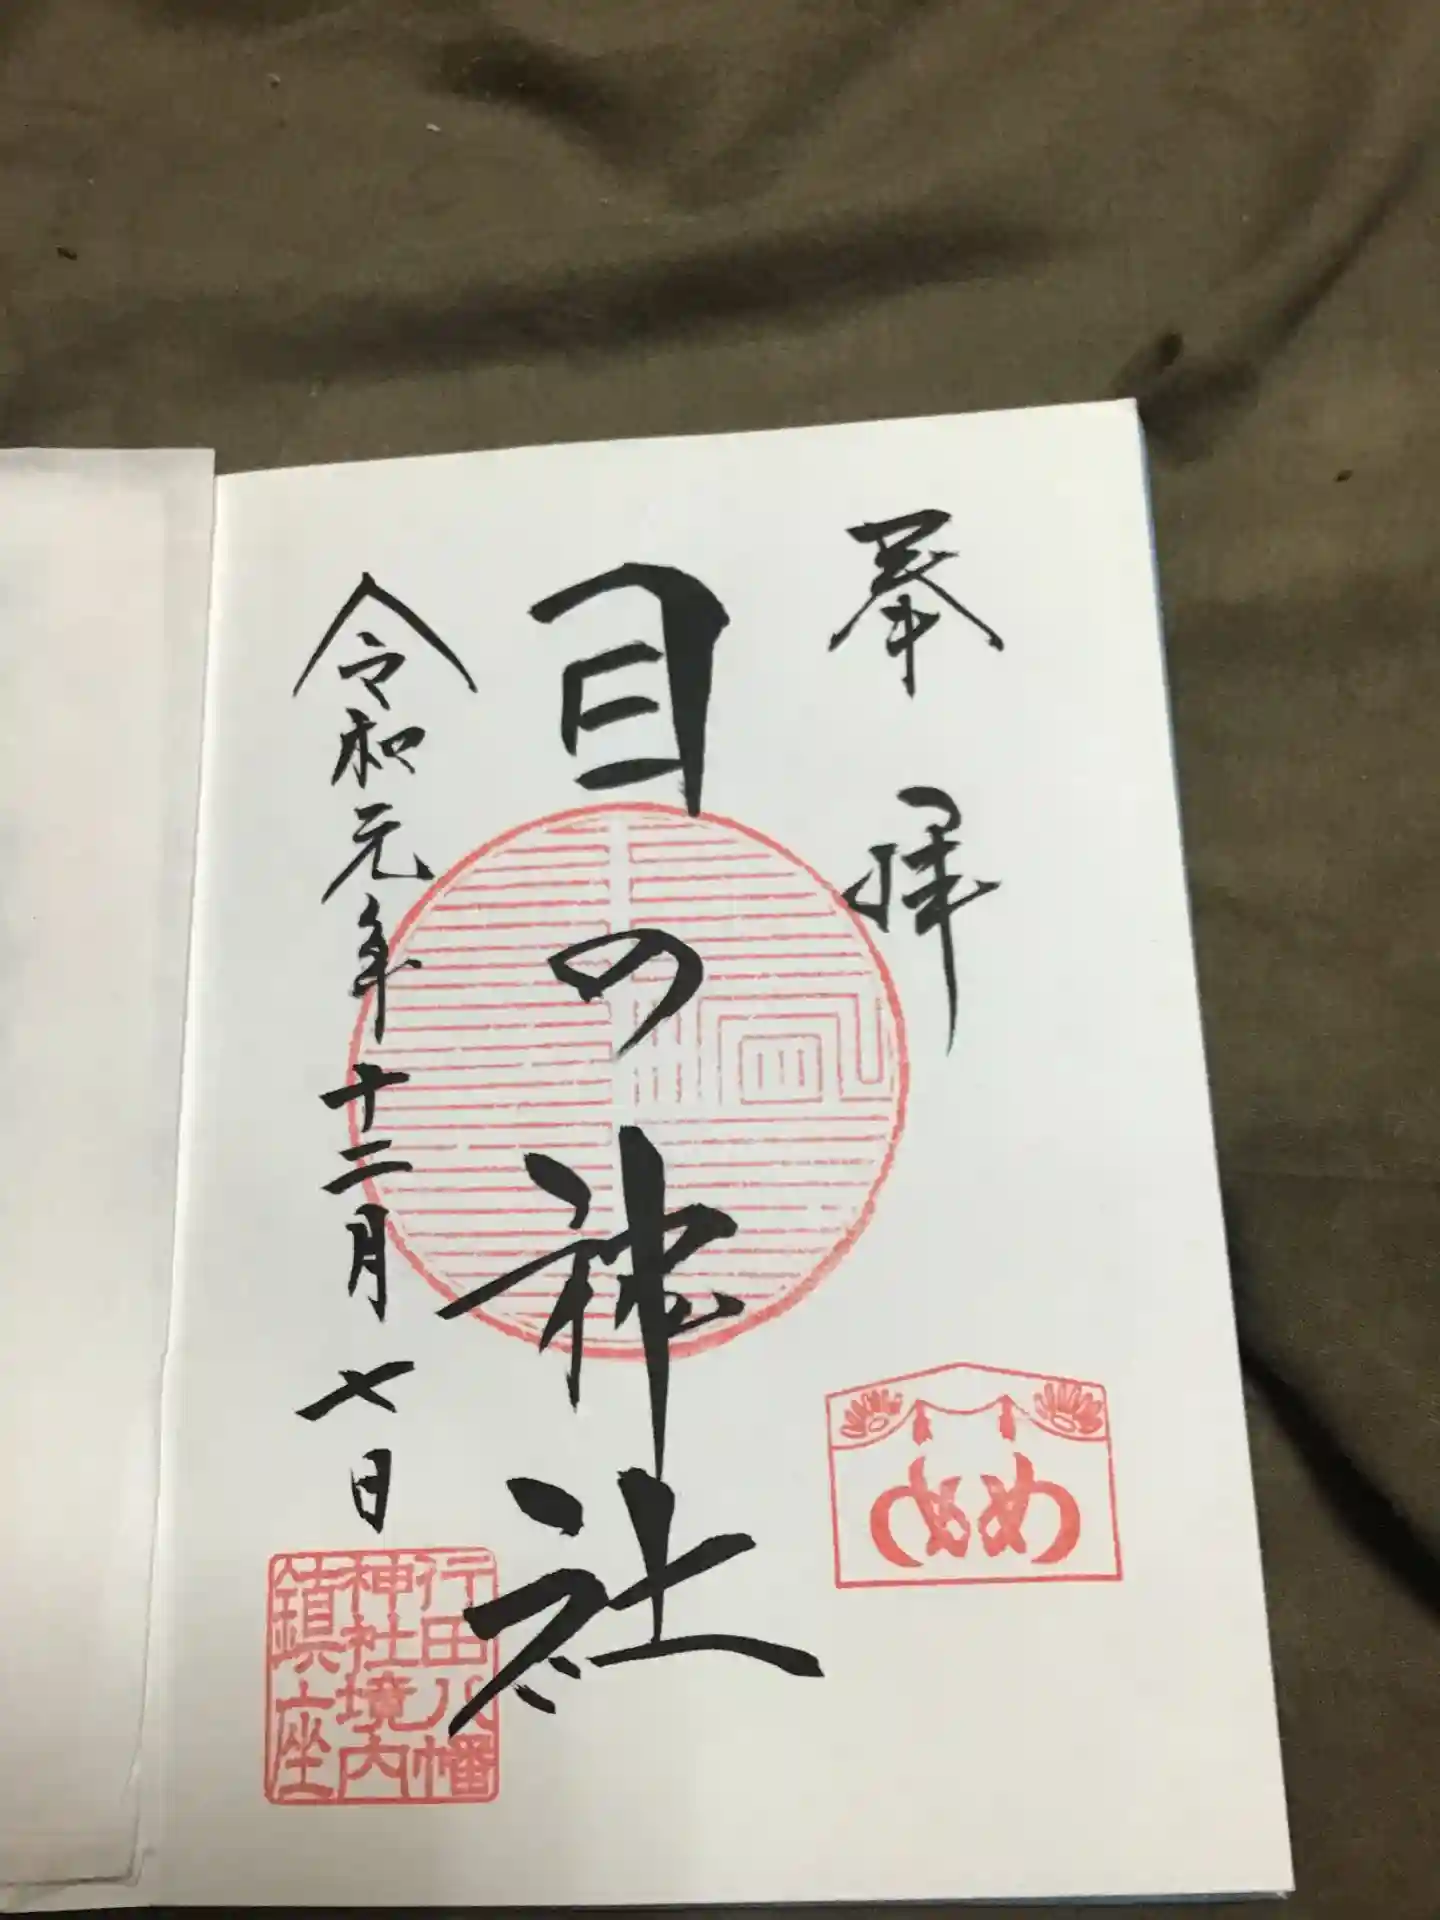 奉拝
目の神社
令和元年十二月七日
め め
行田八幡
神社境内
鎮座